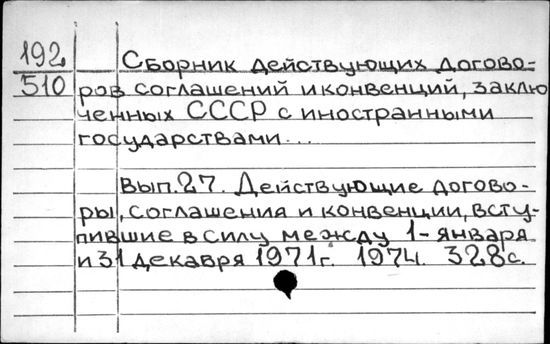 192
510
Сборник действующих догово-
ров соглашений и конвенций, заклю
ченных СССР с иностранными
государствами...
Вып.27. Действующие догово-
ры, соглашения и конвенции, всту-
пившие в силу между 1-января
и 31 декабря 1971г. 1974. 328с.